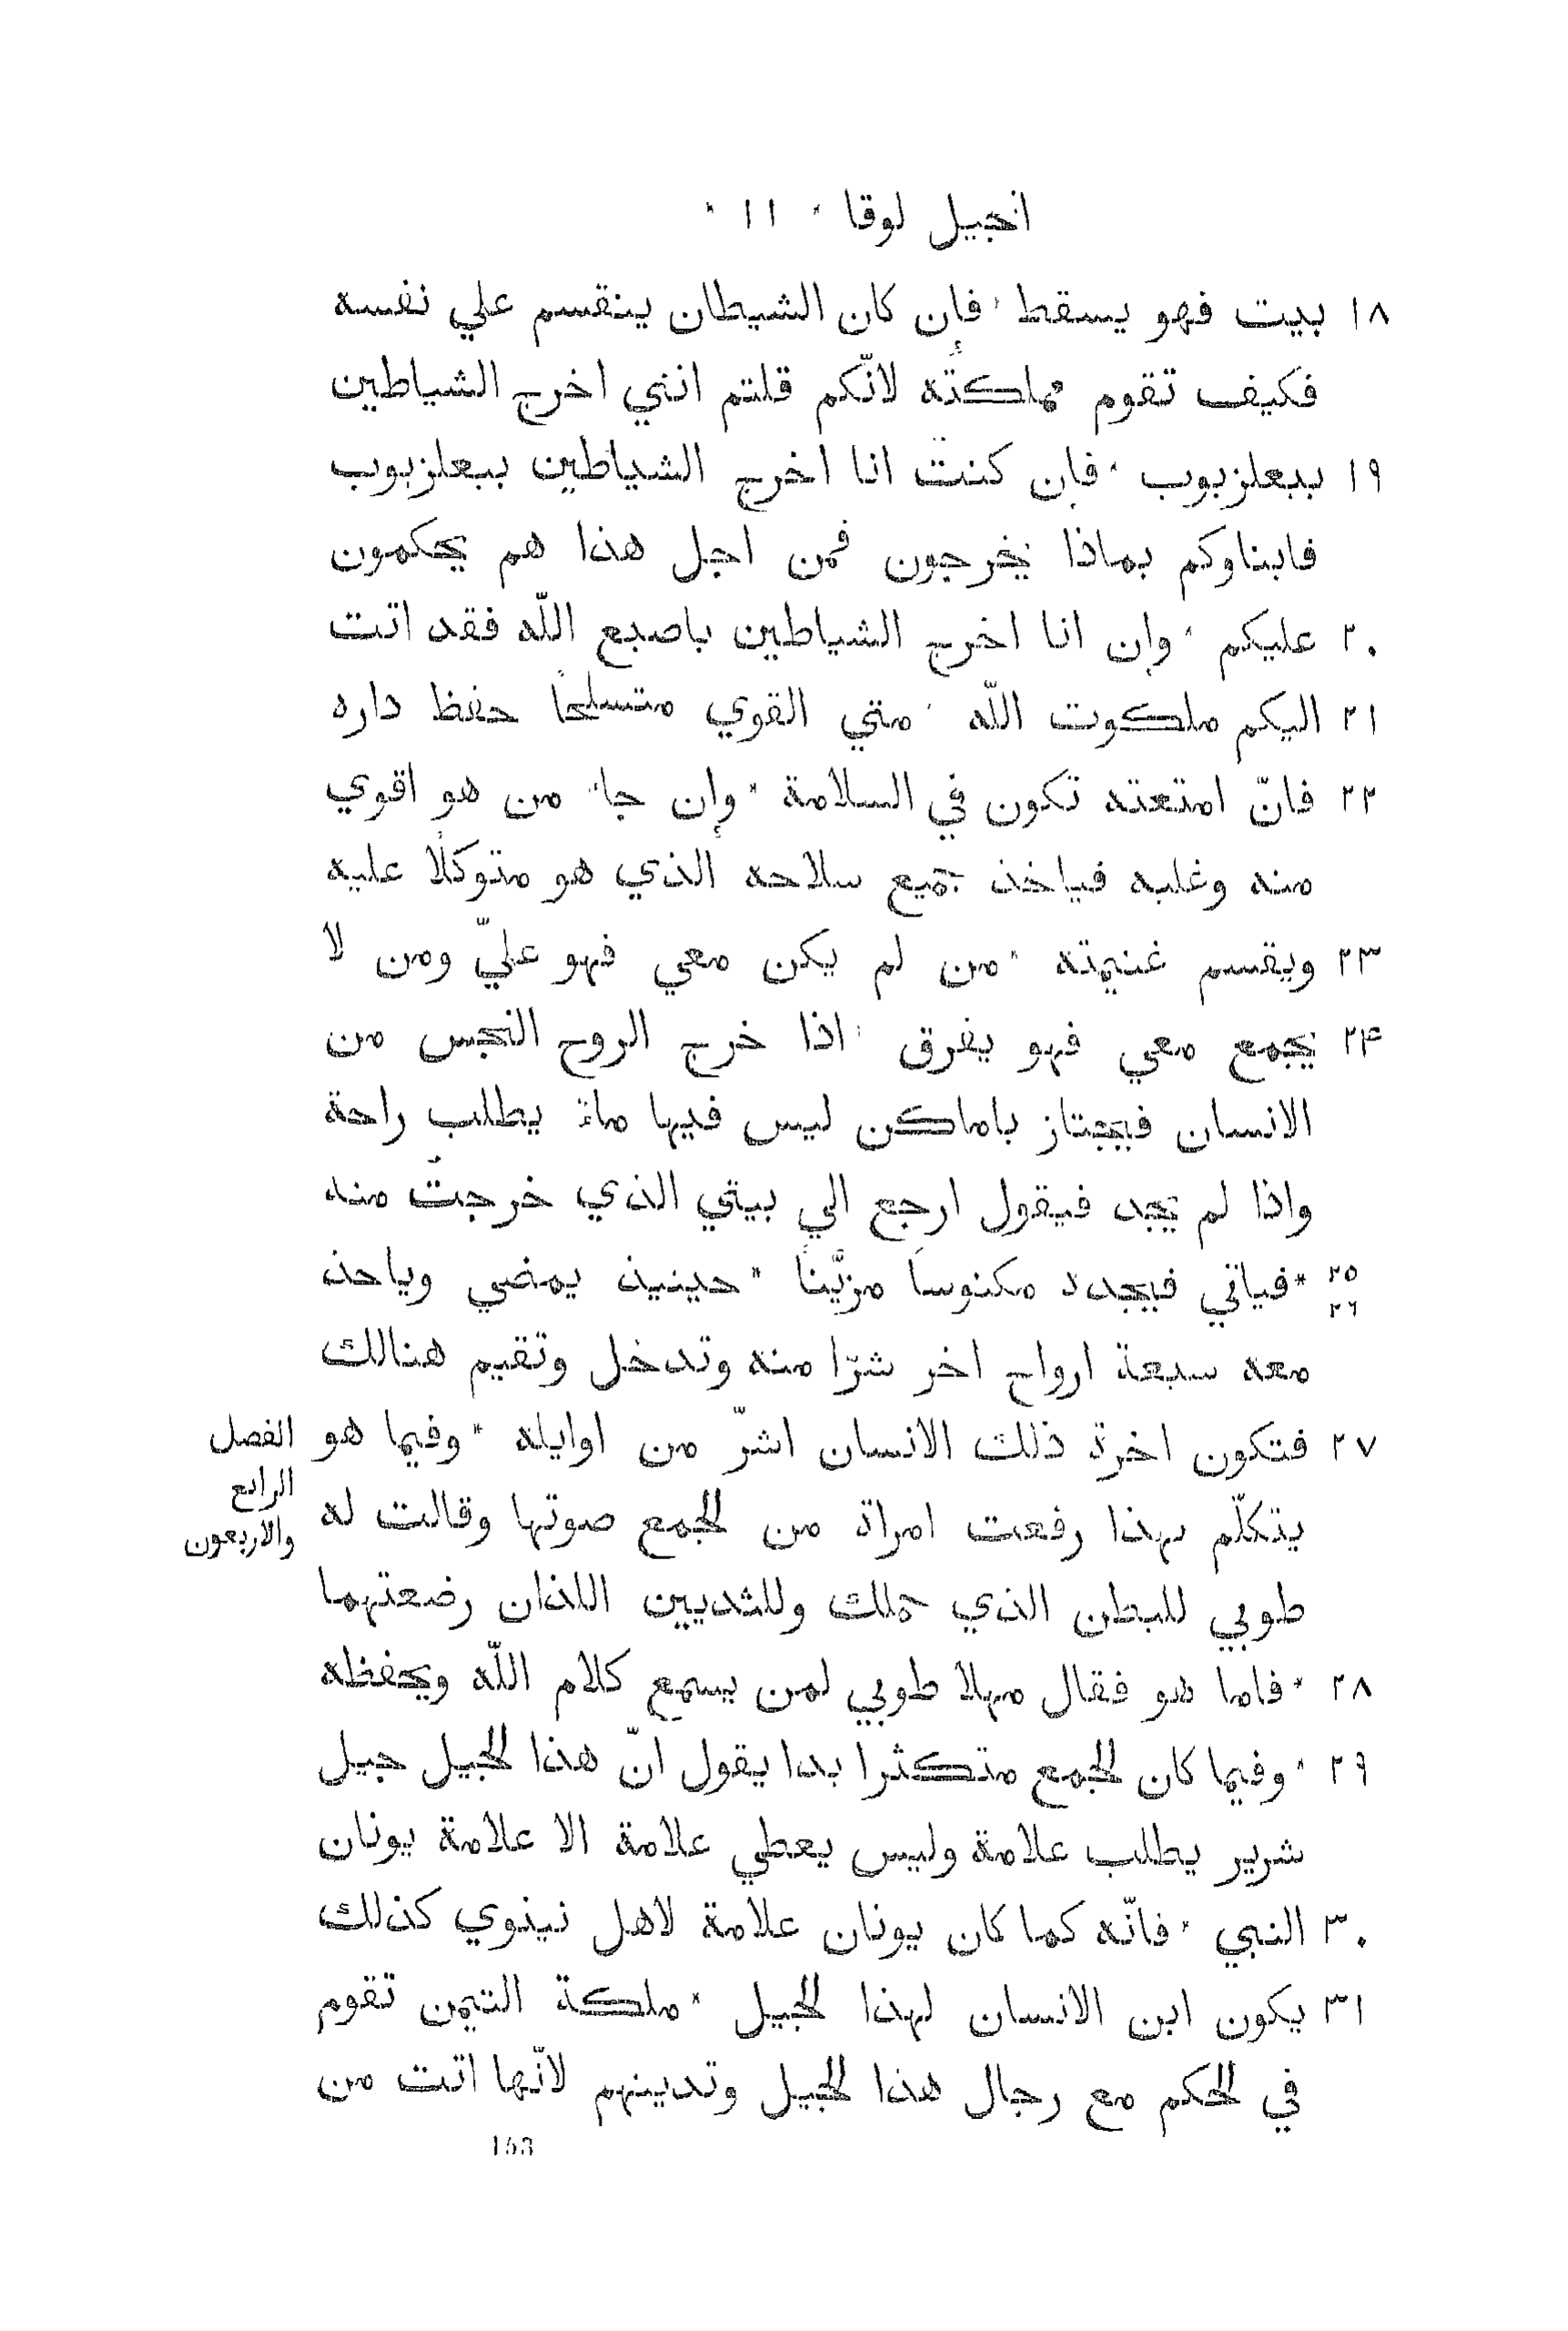 انجيل لوقا * ١١ *
١٨ بيت فهو يسقط * فإن كان الشيطان ينقسم علي نفسه
فكيف تقوم مملكتُه لانّكم قلتم انني اخرج الشياطين
١٩ ببعلزبوب * فإن كنت انا اخرج الشياطين ببعلزبوب
فابناوكم بماذا يخرجون فمن اجل هذا هم يحكمون
٢٠ عليكم * وإن انا اخرج الشياطين باصبع اللّه فقد اتت
٢١ اليكم ملكوت اللّه * متي القوي متسلحاً حفظ داره
٢٢ فانّ امتعته تكون في السلامة * وإن جاء من هو اقوي
منه وغلبه فياخذ جميع سلاحه الذي هو متوكلًا عليه
٢٣ ويقسم غنيمته * من لم يكن معي فهو عليّ ومن لا
٢٤ يجمع معي فهو يفرق * اذا خرج الروح النجس من
الانسان فيجتاز باماكن ليس فيها ماء يطلب راحة
واذا لم يجد فيقول ارجع الي بيتي الذي خرجتُ منه
٢٥ * فياتي فيجده مكنوساً مزيَّناً * حينيذ يمضي وياخذ
٢٦
معه سبعة ارواح اخر شرّا منه وتدخل وتقيم هنالك
٢٧ فتكون اخرة ذلك الانسان اشرّ من اوايله * وفيما هو
الفصل
الرابع
والاربعون
يتكلّم بهذا رفعت امراة من الجمع صوتها وقالت له
طوبي للبطن الذي حملك وللثديين اللذان رضعتهما
٢٨ * فاما هو فقال مهلا طوبي لمن يسمع كلام اللّه ويحفظه
٢٩ * وفيما كان الجمع متكثرا بدا يقول انّ هذا الجيل جيل
شرير يطلب علامة وليس يعطي علامة الا علامة يونان
٣٠ النبي * فانّه كما كان يونان علامة لاهل نينوي كذلك
٣١ يكون ابن الانسان لهذا الجيل * ملكة التيمن تقوم
في الحكم مع رجال هذا الجيل وتدينهم لانّها اتت من
153